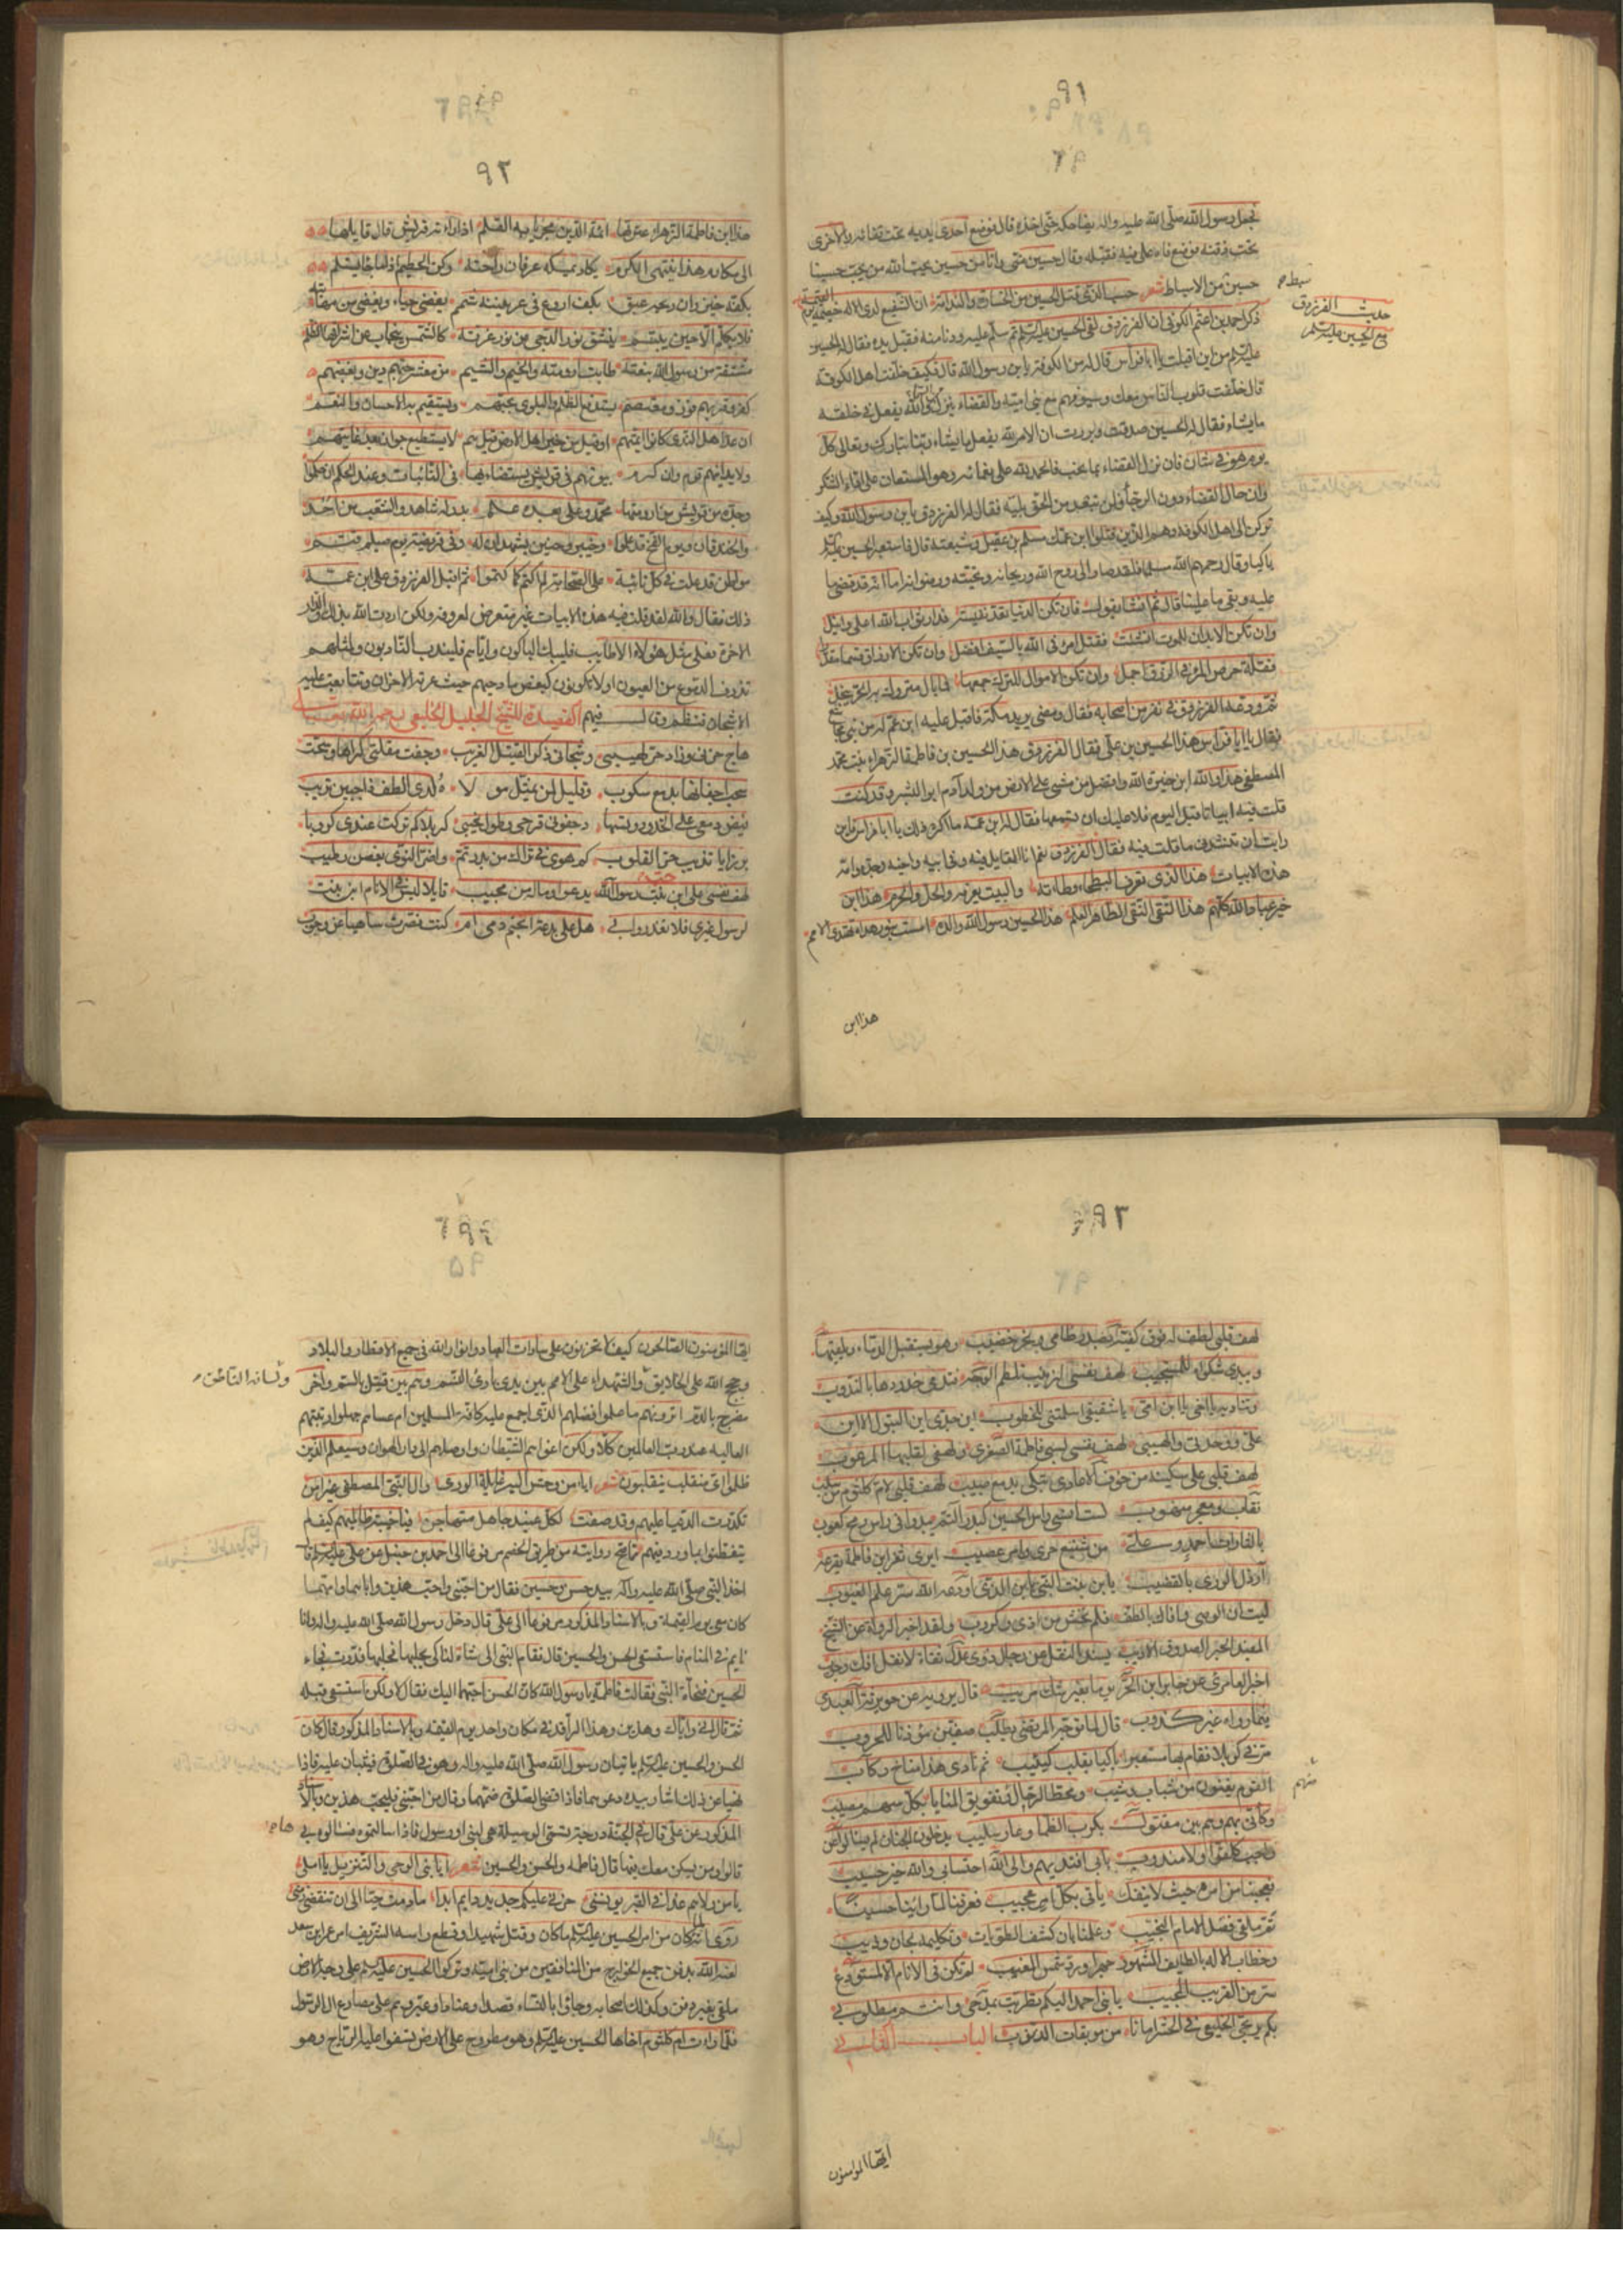 ٩١
فجعل رسول الله صلى الله عليه واله يضاحكه حتى اخذه قال فوضع احدى يديه تحت قفائه والاخرى
تحت ذقنه فوضع فاه على فيه فقبله وقال حسين منى وانا من حسين يحب الله من يحب حسينا
حسين من الاسباط شعر حسب الذى قتل الحسين من الخسارة والندامة ان الشفيع لدى الاله خصيمه يوم القيمة
ذكر احمد بن اعثم الكوفى ان الفرزدق لقى الحسين عليه السلم ثم سلم عليه ودنا منه فقبل يده فقال له الحسين
عليه السلم من اين اقبلت يا ابا فراس قال له من الكوفة يا بن رسول الله قال فكيف خلفت اهل الكوفة
قال خلفت قلوب الناس معك وسيوفهم مع بنى امية والقضاء ينزل الله يفعل فى خلقه
ما يشاء فقال له الحسين صدقت وبررت ان الامر لله يفعل ما يشاء ربنا تبارك وتعالى كل
يوم هو فى شان فان نزل القضاء بما نحب فالحمد لله على نعمائه وهو المستعان على اداء الشكر
وان حال القضاء دون الرجاء فلم يبعد من الحق بليه فقال له الفرزدق يا بن رسول الله وكيف
تركن الى اهل الكوفة وهم الذين قتلوا ابن عمك مسلم بن عقيل وشيعته قال فاستعبر الحسين
باكيا وقال رحم الله مسلما فلقد صار الى روح الله وريحانه وجنته ورضوانه اما انه قد قضى ما
عليه وبقى ما علينا قال ثم انشا يقول فان تكن الدنيا تعد نفيسة فدار ثواب الله اعلى وانبل
وان تكن الابدان للموت انشئت فقتل امرئ فى الله بالسيف افضل وان تكن الارزاق قسما مقدرا
فقلة حرص المرء فى الرزق اجمل وان تكن الاموال للترك جمعها فما بال متروك به الحر يبخل
ثم ودعه الفرزدق فى نفر من اصحابه فقال ومضى يريد مكة فاقبل عليه ابن عم له من بنى مجاشع
فقال يا ابا فراس هذا الحسين بن على فقال الفرزدق هذا الحسين بن فاطمة الزهراء بنت محمد
المصطفى هذا والله ابن خيرة الله وافضل من مشى على الارض من ولد آدم ابو البشر وقد كنت
قلت فيه ابياتا قبل اليوم فلا عليك ان تسمعها فقال له ابن عمه ما اكره ذلك يا ابا فراس فان
رايت ان تنشدنى ما قلت فيه فقال الفرزدق نعم انا القايل فيه وفى ابيه واخيه وجده وامه
هذه الابيات هذا الذى تعرف البطحاء وطأته والبيت يعرفه والحل والحرم هذا ابن
خير عباد الله كلهم هذا التقى النقى الطاهر العلم هذا الحسين رسول الله والده امست بنور هداه تهتدى الامم
حديث الفرزدق
مع الحسين عليه السلم
هذا ابن
٩٢
هذا ابن فاطمة الزهراء عترتها ائمة الدين مجريا به القلم اذا راته قريش قال قايلها
الى مكارم هذا ينتهى الكرم يكاد يمسكه عرفان راحته ركن الحطيم اذا ما جا يستلم
بكفه خيزران ريحه عبق بكف اروع فى عرنينه شمم يغضى حياء ويغضى من مهابته
فلا يكلم الا حين يبتسم ينشق نور الدجى من نور غرته كالشمس ينجاب عن اشراقها الظلم
مشتقة من رسول الله نبعته طابت ارومته والخيم والشيم من معشر حبهم دين وبغضهم
كفر وقربهم فوز ومعتصم يستدفع الظلم والبلوى بحبهم ويستقيم به الاحسان والنعم
ان عد اهل الندى كانوا ائمتهم او قيل من خير اهل الارض قيل هم لا يستطيع جواد بعد غايتهم
ولا يدانيهم قوم وان كرموا بيوتهم فى قريش يستضاء بها فى النائبات وعند الحكم ان حكموا
وجده من قريش من ارومتها محمد وعلى بعده علم بدر له شاهد والشعب من احد
والخندقان ويوم الفتح قد علموا وخيبر وحنين يشهدان له وفى قريضة يوم صيلم قتم
مواطن قد علت فى كل نائبة على الصحابة لم اكتم كما كتموا ثم اقبل الفرزدق على ابن عمه
ذلك فقال والله لقد قلت فيه هذه الابيات غير متعرض لمعروفه ولكن اردت الله بذلك والدار
الاخرة فعلى مثل هؤلاء الاطايب فليبك الباكون واياهم فليندب النادبون ولمثلهم
تذرف الدموع من العيون اولا تكونون كبعض مادحيهم حيث عرته الاحزان وتتابعت عليه
الاشجان فنظم وقال فيهم القصيدة للشيخ الجليل الخليعى رحمه الله
هاج حزنى وزاد حر لهيبى وشجانى ذكر القتيل الغريب وجفت مقلتى كراها وسحت
سحب اجفانها بدمع سكوب وقليل لمن يمثل مولاه لدى الطف فاجبين تريب
فيض دمعى على الخدود وجفونى قرحى وطول نحيبى كربلا كم تركت عندى كروبا
برزايا تذيب حر القلوب كم هوى فى ثراك من بدر تم واضر التوى بغصن رطيب
لهف نفسى على ابن بنت رسول الله يدعو وماله من مجيب قايلا ليس فى الانام ابن بنت
لرسول غيرى فلا تغدروا بى هل على بدعة ابحتم دمى ام كنت قصرت ساهيا عن وجوب
٩٣
لهف قلبى لطفله فوق كفيه بصدر ظامى ونحر خضيب وهو يستقبل الدماء ويلقيها
ويبدى شكرا للمستجيب لهف نفسى لزينب تلطم الوجه تدمى خدودها بالندوب
وتناديه يا اخى يا ابن امى يا شقيقى اسلمتنى للخطوب اين جدى اين البتول الا اين
على ووحدتى والهيبى لهف نفسى لسبى فاطمة الصغرى ولهفى لقلبها المرعوب
لهف قلبى على سكينة من خوف الاعادى تبكى بدمع صبيب لهف قلبى لام كلثوم من سلب
نقاب ومعجر منهوب لست انسى راس الحسين كبدر التم يبدو فى راس رمح كعوب
يا لثارات احمد وعلى من شنيع جرى وامر عصيب ايرى ثغر ابن فاطمة يقرعه
ارذل الورى بالقضيب يا بن بنت النبى يا بن الذى اودعه الله ستر علم الغيوب
ليت ان الوصى وافاك بالطف فلم تخش من اذى وكروب ولقد اخبر الرواة عن الشيخ
المفيد الحبر الصدوق الاديب بسند النقل عن رجال ذوى عدل ثقاة لانقل افك وحوب
اخبر العامرى عن جابر ابن الحر يوما بغير شك مريب قال يرويه عن جويرية العبدى
فيما رواه غير كذوب قال لما توجه المرتضى يطلب صفين موذنا للحروب
مر فى كربلا فقام بها مستعبرا باكيا بقلب كئيب ثم نادى هذا مناخ ركاب
القوم يفنون من شباب وشيب ومحط الرجال فتفويق المنايا بكل سهم مصيب
وكانى بهم وهم بين مقتول بكرب الظما وعار سليب يدخلون الجنان لم يسالوا عن
واجب كلفوا ولا مندوب بابى افتديهم والى الله احتسابى والله خير حسيب
فعجبنا من امره حيث لا ينفك ياتى بكل امر عجيب فعرفنا لما راينا حسينا
ثم ملقى فضل الامام النجيب وعلمنا بان كشف الطويات وتكليمه لجان وذيب
وخطاب الاله بالطايف المشهود جهرا ورد شمس المغيب لم تكن فى الانام الا لمستودع
سر من القريب المجيب يا بنى احمد اليكم نظرت بمدحى وانتم مطلوبى
بكم يرتجى الخليعى فى الحشر امانا من موبقات الذنوب الباب الثانى
منهم
ايها المومنون
ايها المؤمنون الصالحون كيف لا تحزنون على سادات العباد وانوار الله فى جميع الاقطار والبلاد
وحجج الله على الخلايق والشهداء على الامم بين يدى بارئ النسم وهم بين قتيل بالسم واخر
مضرج بالدم اترونهم ما علموا فضلهم الذى اجمع عليه كافة المسلمين ام عساهم جهلوا رتبتهم
العالية عند رب العالمين كلا ولكن اغواهم الشيطان واوصلهم الى دار الهوان وسيعلم الذين
ظلموا اى منقلب ينقلبون شعر ايا من وجدهم لليه غاية الورى وال النبى المصطفى
تكدرت الدنيا عليهم وقد صفت لكل عنيد جاهل متهاجن فيا خيبة ظالميهم كيف لم
يتعظوا بما ورد فيهم فما صح روايته من طريق الخصم مرفوعا الى احمد بن حنبل عن على عليه السلم قال
اخذ النبى صلى الله عليه واله بيد حسن وحسين فقال من احبنى واحب هذين واباهما وامهما
كان معى يوم القيمة وبالاسناد المذكور مرفوعا الى على قال دخل رسول الله صلى الله عليه واله وانا
نايم فى المنام فاستسقى الحسن والحسين قال فقام النبى الى شاة لنا كى يحلبها فحلبها فدرت فجاء
الحسين فنحاه النبى فقالت فاطمة يا رسول الله كان الحسن احبهما اليك فقال لا ولكن استسقى قبله
ثم قال انى واياك وهذين وهذا الراقد فى مكان واحد يوم القيمه وبالاسناد المذكور قال كان
الحسن والحسين عليهما السلم ياتيان رسول الله صلى الله عليه واله وهو فى الصلوة فيثبان عليه فاذا
نهيا عن ذلك اشار بيده دعوهما فاذا قضى الصلوة ضمهما وقال من احبنى فليحب هذين وبالاسناد
المذكور عن على قال فى الجنة درجة تسمى الوسيلة هى لنبى او رسول فاذا سالتموه فسالوه لى
قالوا من يسكن معك فيها قال فاطمة والحسن والحسين شعر ايا بنى الوحى والتنزيل يا املى
يا من ولاهم غدا فى القبر يونسنى حزنى عليكم جديد دايم ابدا ما دمت حيا الى ان تنقضى
روى انه لما كان من امر الحسين عليه السلم ما كان وقتل شهيدا وقطع راسه الشريف امر عمر ابن سعد
لعنه الله بدفن جميع الخوارج من المنافقين من بنى امية وتركوا الحسين عليه السلم على وجه الارض
ملقى بغير دفن وكذلك اصحابه وجاؤا بالنساء قصدا وعنادا وعبروهم على مصارع ال الرسول
فلما رات ام كلثوم اخاها الحسين عليه السلم وهو مطروح على الارض تسفوا عليه الرياح وهو